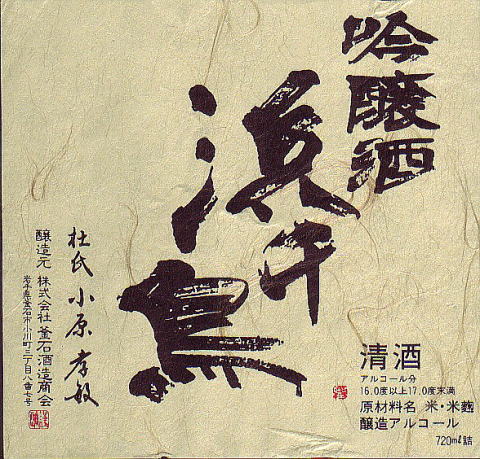 吟醸酒
浜千鳥
杜氏 小原孝敏
醸造元 株式会社 釜石酒造商会
岩手県釜石市小川町三丁目八番七号
清酒
アルコール分
16.0度以上17.0度末満
原材料名 米・米麹
醸造アルコール
720mℓ詰